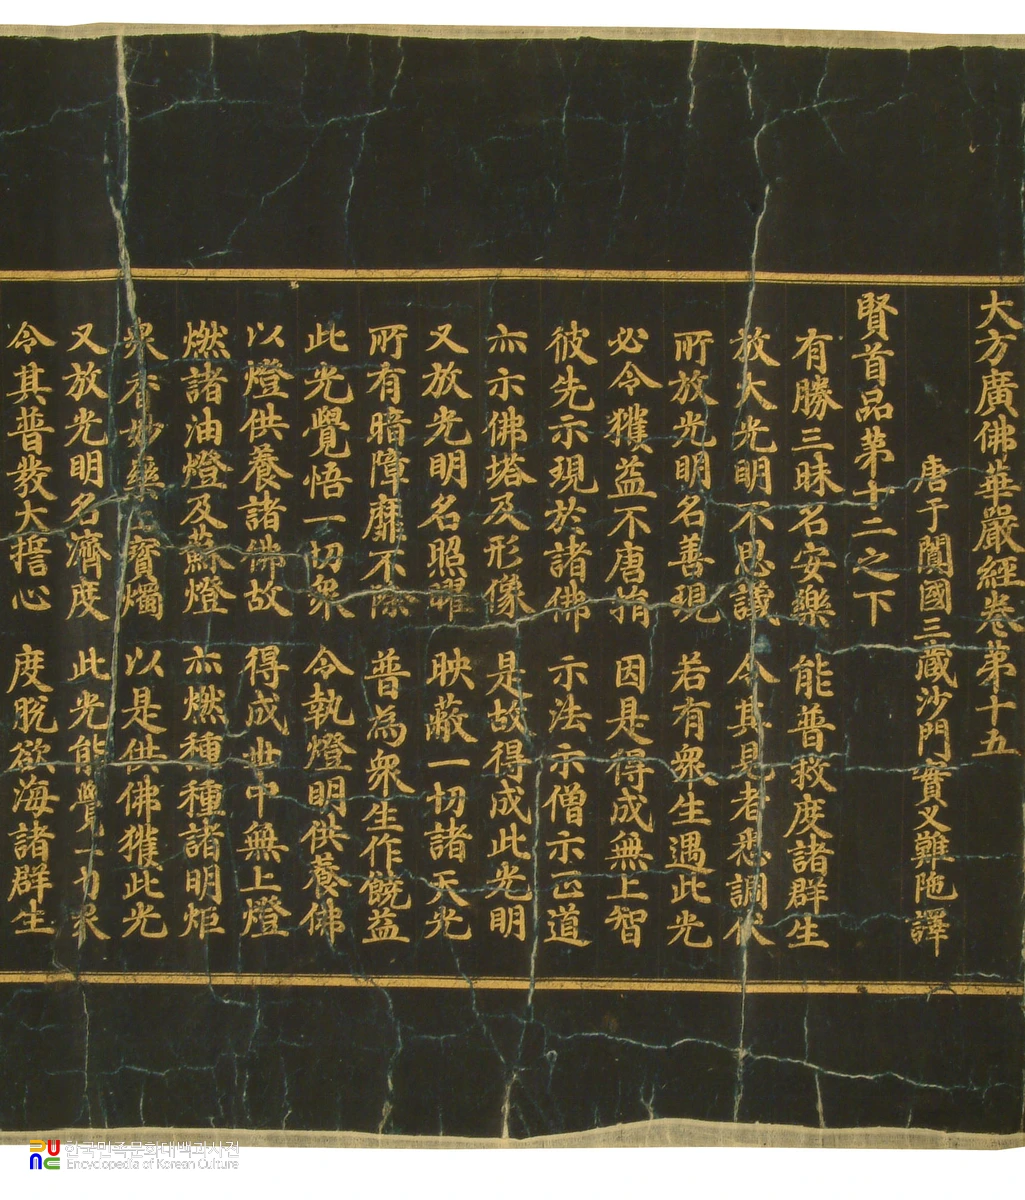 大方廣佛華嚴經卷第十五
唐于闐國三藏沙門實叉難陁譯
賢首品第十二之下
有勝三昧名安樂 能普救度諸群生
放大光明不思議 令其見者悉調伏
所放光明名善現 若有衆生遇此光
必令獲益不唐捐 因是得成無上智
彼先示現於諸佛 示法示僧示正道
亦示佛塔及形像 是故得成此光明
又放光明名照曜 映蔽一切諸天光
所有暗障靡不除 普為衆生作饒益
此光覺悟一切衆 令執燈明供養佛
以燈供養諸佛故 得成世中無上燈
燃諸油燈及蘇燈 亦燃種種諸明炬
衆香妙藥寶燭 以是供佛獲此光
又放光明名濟度 此光能覺一切衆
令其普發大誓心 度脫欲海諸群生
한국민족문화대백과사전
Encyclopedia of Korean Culture